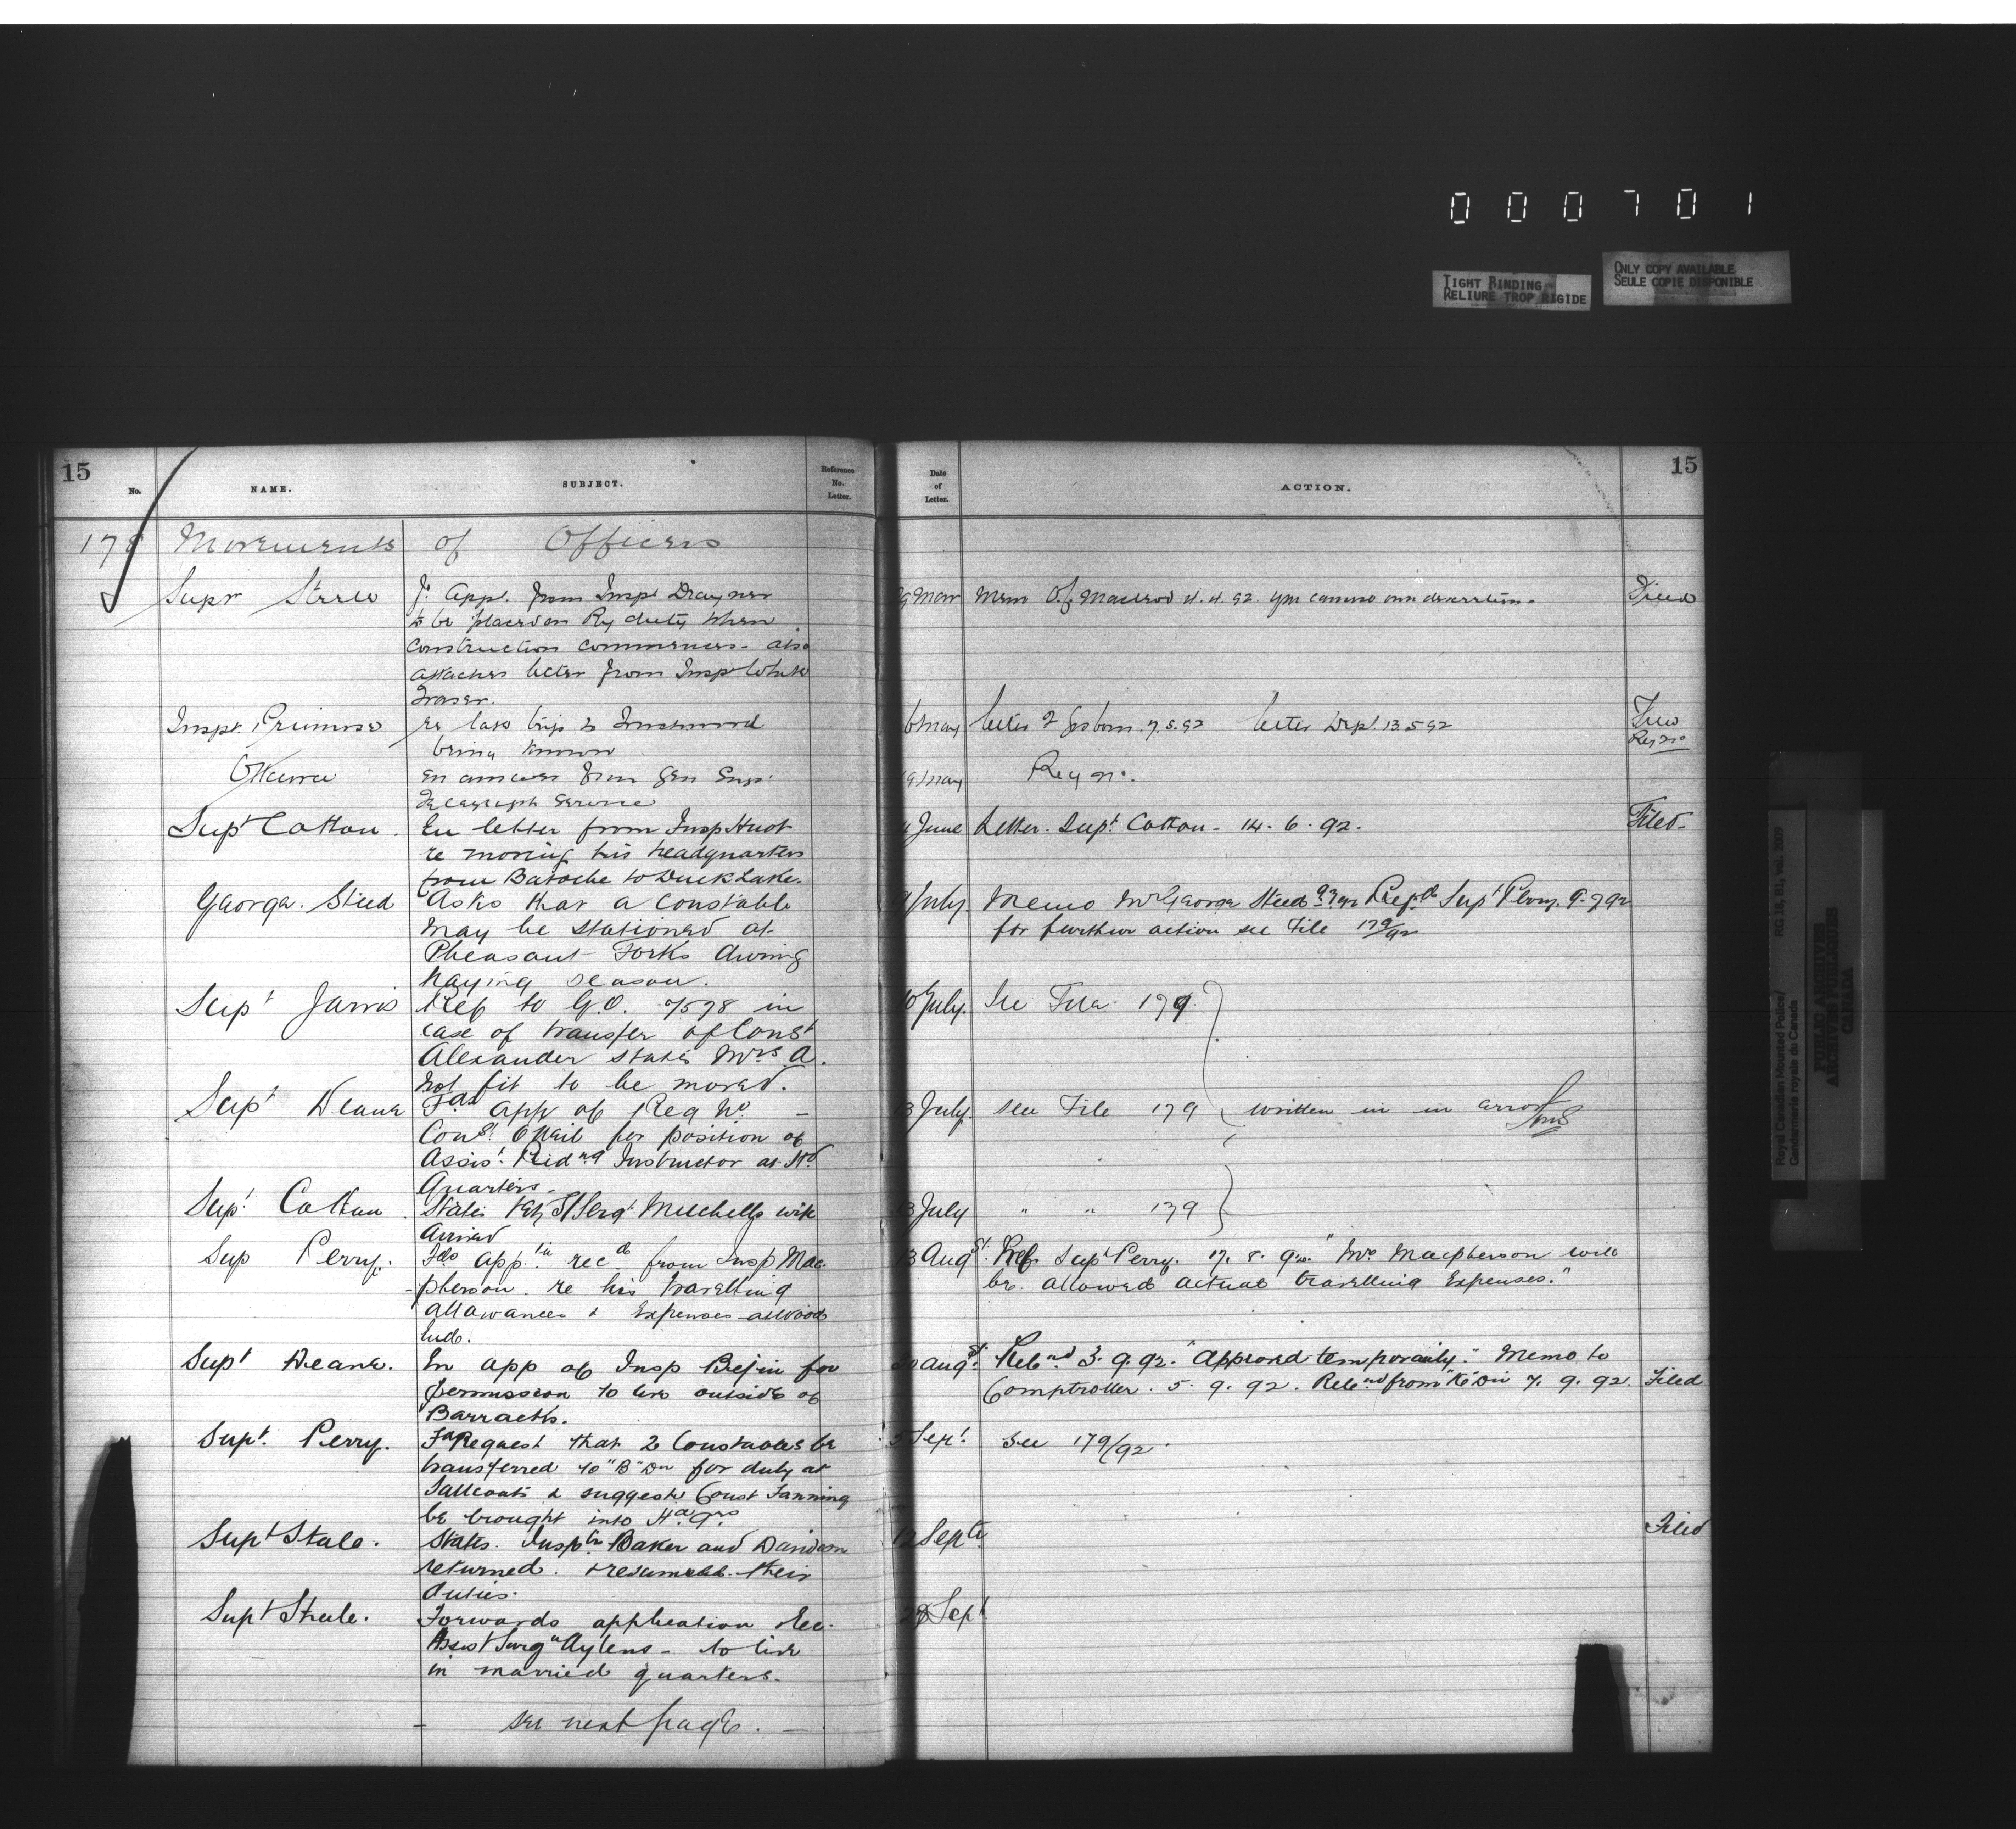 0 0 0 7 0 1
TIGHT BINDING
RELIURE TROP RIGIDE
ONLY COPY AVAILABLE
SEULE COPIE DISPONIBLE
15
No.
NAME.
SUBJECT.
Reference
No.
Letter.
Date
of
Letter.
ACTION.
15
178 Movements of Officers
Supt Steele
app. from Insp
to be placed on Ry duty when
construction commences - also
attaches letter from Insp White
Fraser.
Mar Mem O.C. Macleod 4.4.92
Filed
Inspt. Primrose
re last trip to
being known
6 May letter 7.5.92 letter Dept. 13.5.92
Ottawa
En answer from Gen Supt
Telegraph Service
May Reg no.
Supt Cotton.
En letter from Insp Huot
re moving his headquarters
from Batoche to Duck Lake.
June Letter. Supt Cotton - 14.6.92.
Filed
George Steed
Asks that a constable
may be stationed at
Pheasant Forks during
haying season.
July. Memo Mr George Steed Supt Perry. 9.7.92
for further action see File 179/92
Supt Jarvis
Ref to G.O. 7578 in
case of transfer of Const
Alexander states Mrs A.
not fit to be moved.
July. See File 179.
Supt Deane
app of Reg No. -
Const. O'Neil for position of
Assist. Riding Instructor at Hd
Quarters.
13 July. see File 179 written in in error
Supt Cotton
States St/Sergt Mitchell's wife
arrived
13 July " " 179
Sup Perry.
Fds appn recd from Insp Mac-
-pherson re his travelling
allowances & Expenses at Wood
End.
13 Augst. Ref Supt Perry. 17.8.92. "Mr Macpherson will
be allowed actual travelling Expenses."
Supt Deane.
En app of Insp Begin for
permission to live outside of
Barracks.
Augst. Retnd 3.9.92. "Approved temporarily." Memo to
Comptroller. 5.9.92. Retnd from "K" Div 7.9.92. Filed
Supt. Perry.
Request that 2 Constables be
transferred to "B" Dn for duty at
Saltcoats & suggests Const Fanning
be brought into Hd Qrs
Sept. See 179/92.
Supt Steele.
States. Insptrs Baker and Davidson
returned & resumed their
duties.
12 Septr
Filed
Supt Steele.
Forwards application
Assist Surgn Aylens - to live
in married quarters.
28 Sept
- see next page. -
Royal Canadian Mounted Police/
Gendarmerie royale du Canada
RG 18, B1, vol. 2009
PUBLIC ARCHIVES
ARCHIVES PUBLIQUES
CANADA